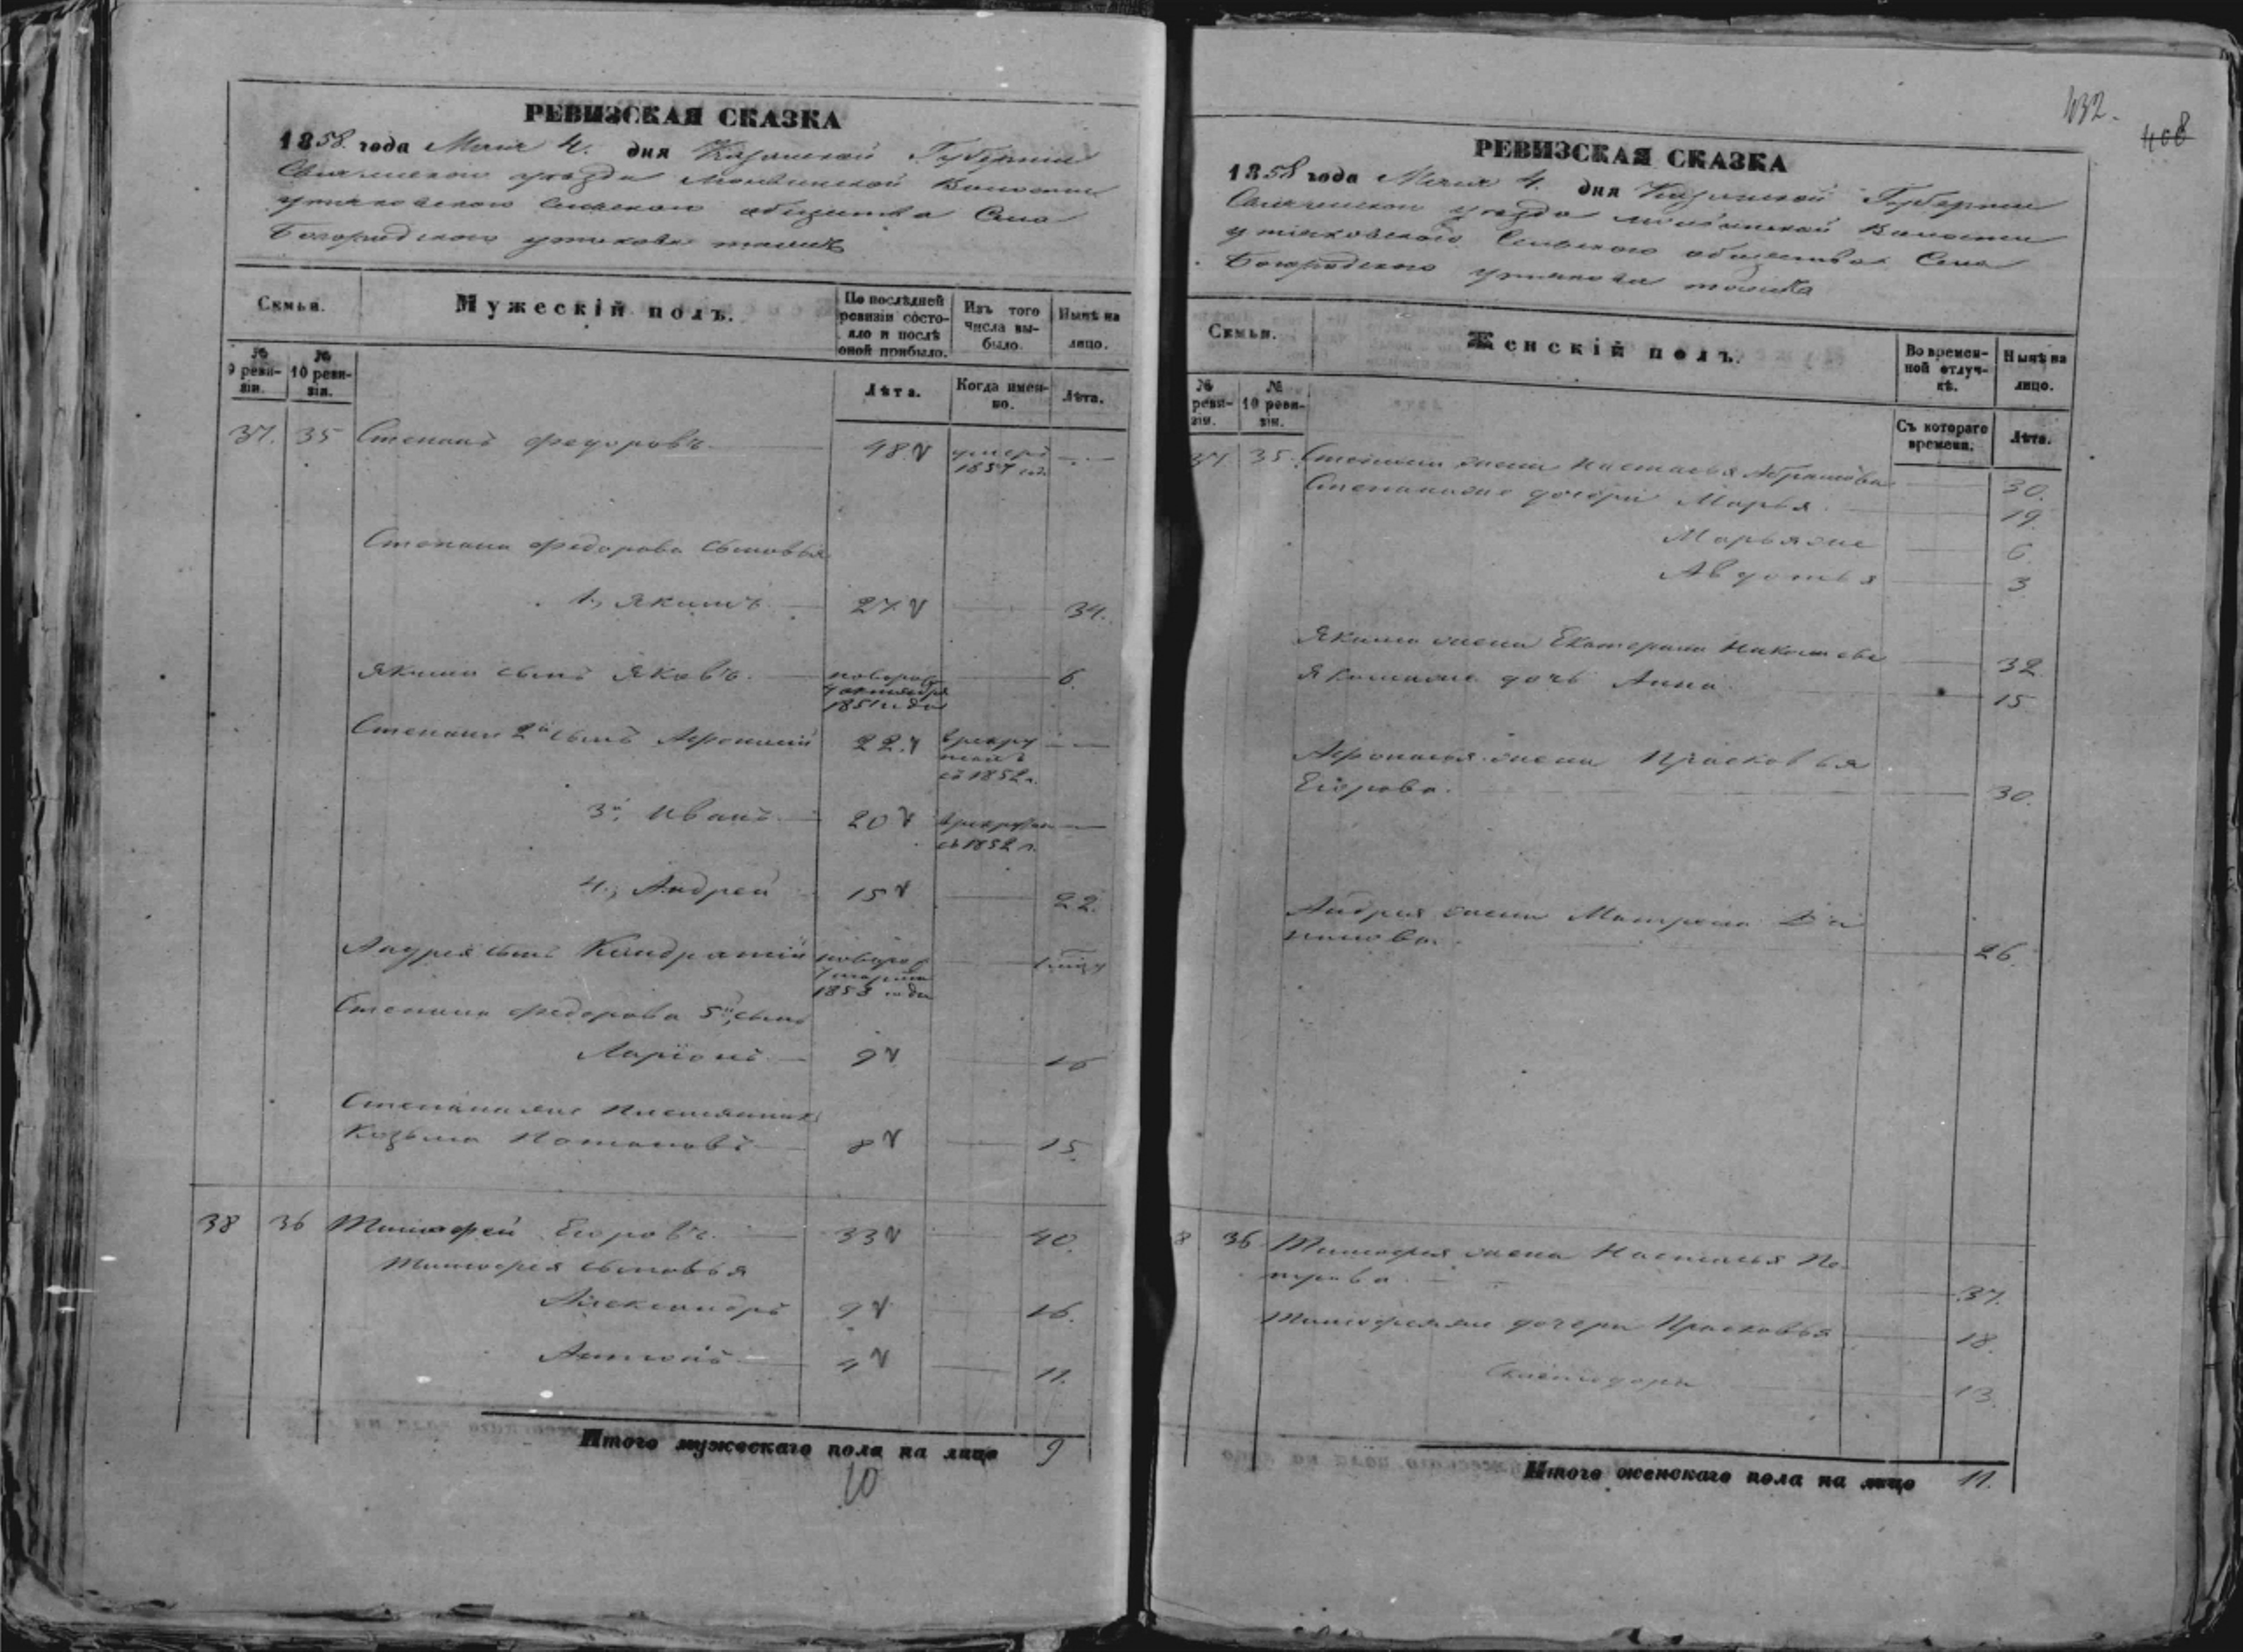 РЕВИЗСКАЯ СКАЗКА
1858 года Маия 4. дня Казанской Губернии
Свияжскаго уезда Волости
Утяковскаго Сельскаго общества Села
Богородскаго Утякова тожъ
Семьи.
Мужескій полъ.
По послѣдней ревизіи состояло и послѣ оной прибыло.
Изъ того числа выбыло.
Нынѣ на лицо.
№ 9 ревизіи.
№ 10 ревизіи.
Лѣта.
Когда именно.
Лѣта.
37. 35 Степанъ Федоровъ 48
умеръ
1857 года
Степана Федорова сыновья
1., Якимъ 27. 34.
Якима сынъ Яковъ новорож 6.
октября
1851 года
Степана 2й сынъ Афонасий 22.
в рекру
съ 1852 г.
3й Иванъ 20
в рекруты
съ 1852 г.
4., Андрей 15 22.
Андрея сынъ Кондратий новорож
марта
1858 года
Степана Федорова 5й, сынъ
Ларіонъ 9 16
Степана же племянникъ
Козьма Потаповъ 8 15.
38 36 Тимофей Егоровъ 33 40.
Тимофея сыновья
Александръ 9 16.
Антонъ 4 11.
Итого мужескаго пола на лицо 9
10
432.
408
РЕВИЗСКАЯ СКАЗКА
1858 года Маия 4. дня Казанской Губернии
Свияжскаго уезда Волости
Утяковскаго Сельскаго общества Села
Богородскаго Утякова тожъ
Семьи.
Женскій полъ.
Во временной отлучкѣ.
Нынѣ на лицо.
№ ревизіи.
№ 10 ревизіи.
Съ котораго времени.
Лѣта.
37. 35. Степана жена Настасья Абрамова 30.
Степана же дочери Марья 19.
Марья же 6.
Авдотья 3
Якима жена Екатерина Николаева 32.
Якима же дочь Анна 15
Афонасья жена Прасковья
Егорова. 30.
Андрея жена Матрена
26.
8 36 Тимофея жена Настасья Пе-
трова 37.
Тимофея же дочери Прасковья 18.
13.
Итого женскаго пола на лицо 11.